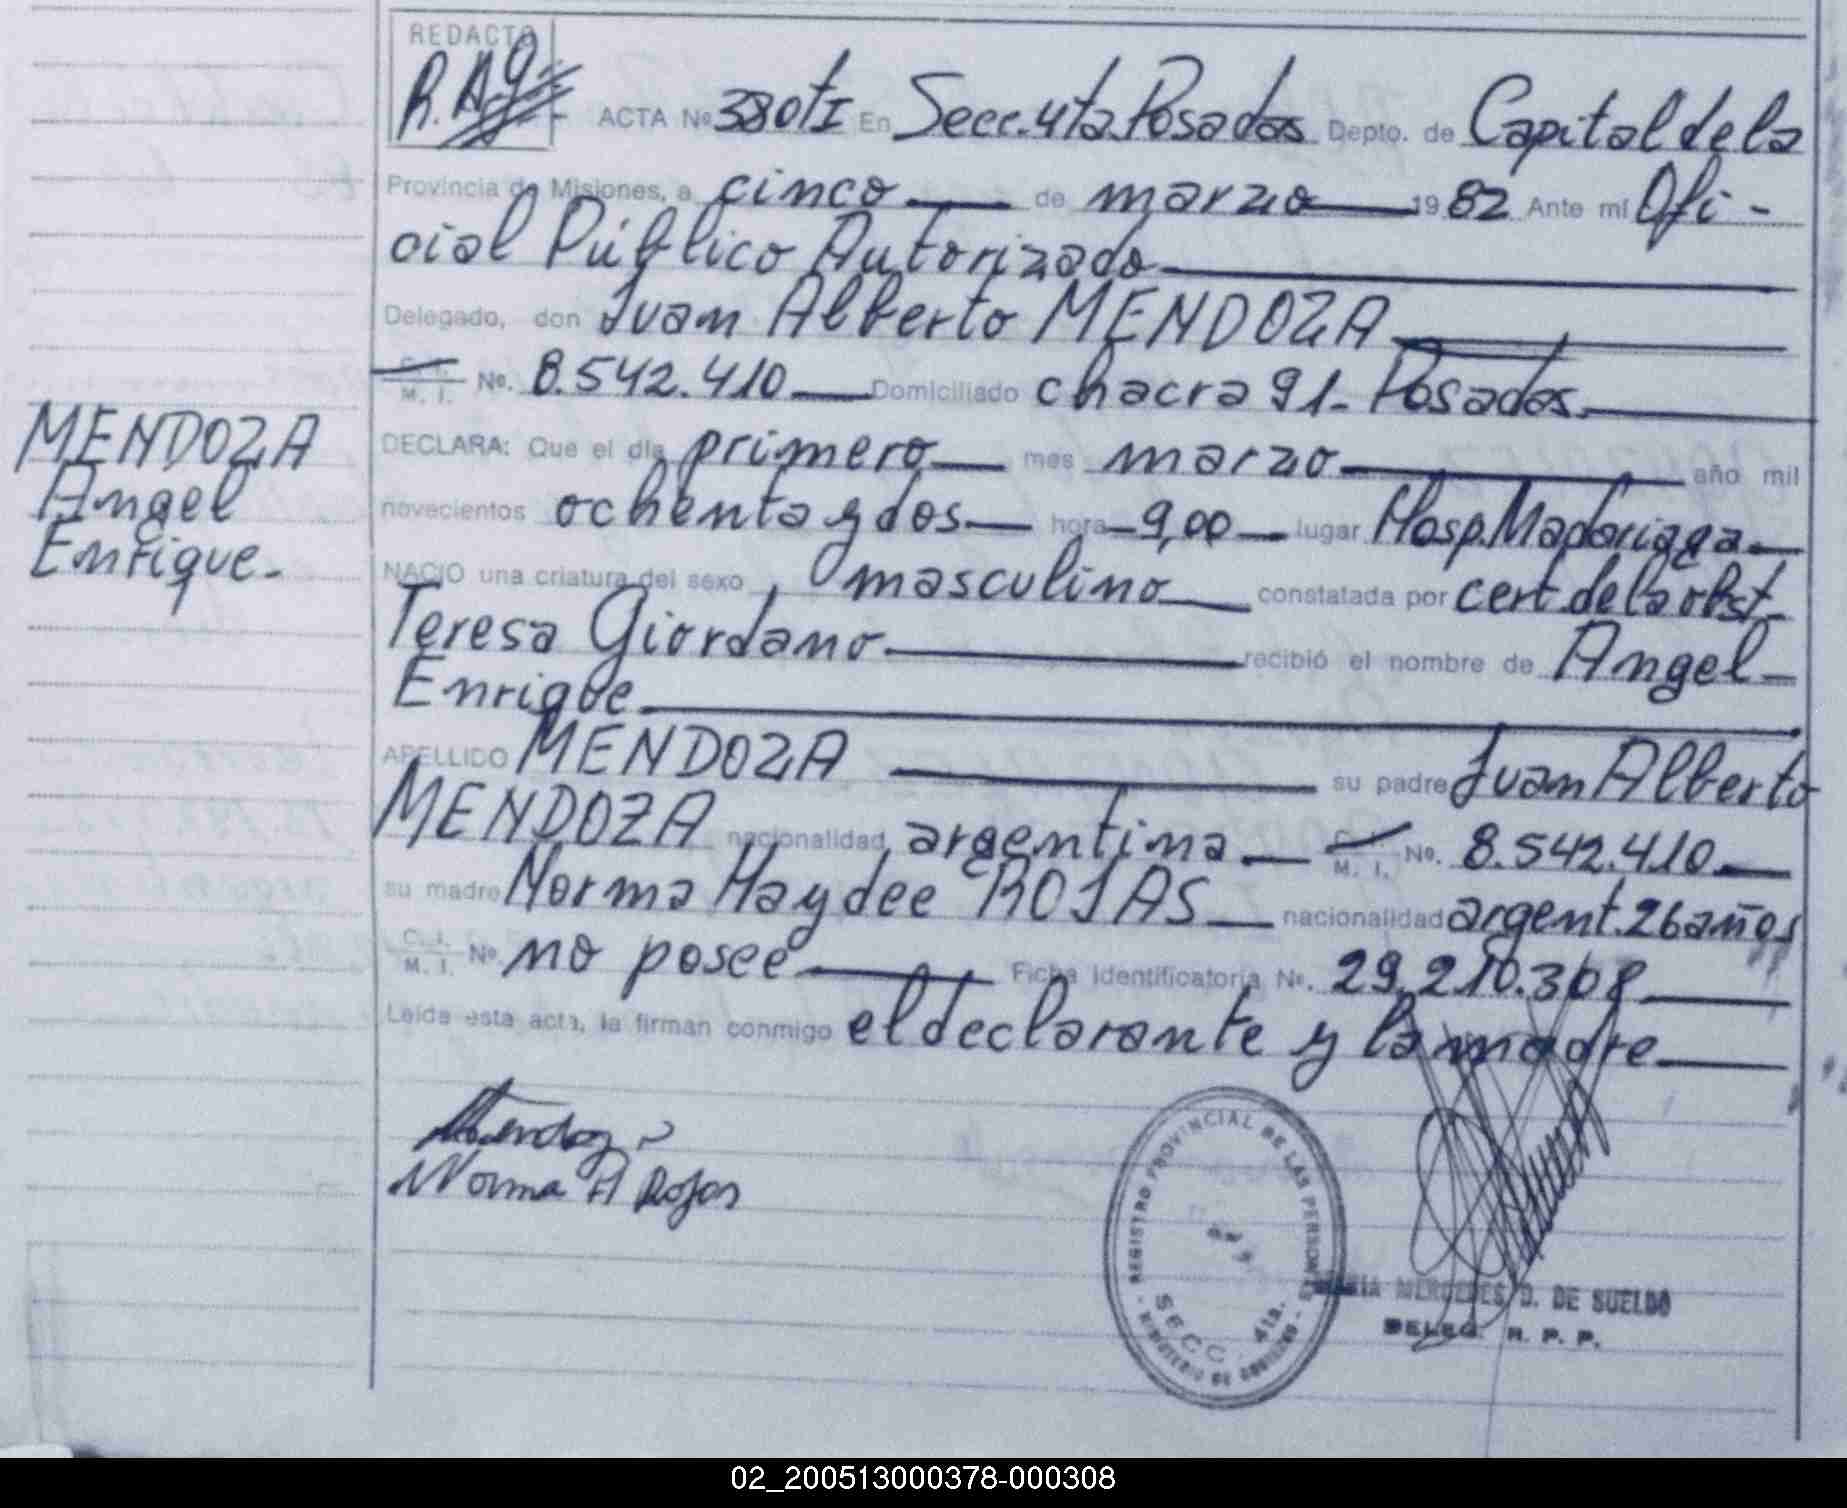 REDACTO
ACTA Nº 380 tI En Secc. 4ta. Posadas Depto. de Capital de la
Provincia de Misiones, a cinco de marzo 19 82 Ante mí Ofi-
cial Público Autorizado
Delegado, don Juan Alberto MENDOZA
C. I. M. I. No. 8.542.410 Domiciliado chacra 91- Posadas.
MENDOZA
Angel
Enrique.
DECLARA: Que el día primero mes marzo año mil
novecientos ochenta y dos hora 9,00 lugar Hosp. Madariaga
NACIO una criatura del sexo masculino constatada por cert. de la obst.
Teresa Giordano recibió el nombre de Angel
Enrique
APELLIDO MENDOZA su padre Juan Alberto
MENDOZA nacionalidad argentina C. I. M. I. No. 8.542.410
su madre Norma Haydee ROJAS nacionalidad argent. 26 años
C. I. M. I. No. no posee Ficha Identificatoria No. 29.210.308
Leída esta acta, la firman conmigo el declarante y la madre
Mendoza
Norma H Rojas
REGISTRO PROVINCIAL DE LAS PERSONAS
SECC. 4ta.
MINISTERIO DE GOBIERNO
MARIA MERCEDES D. DE SUELDO
DELEG. R. P. P.
02_200513000378-000308